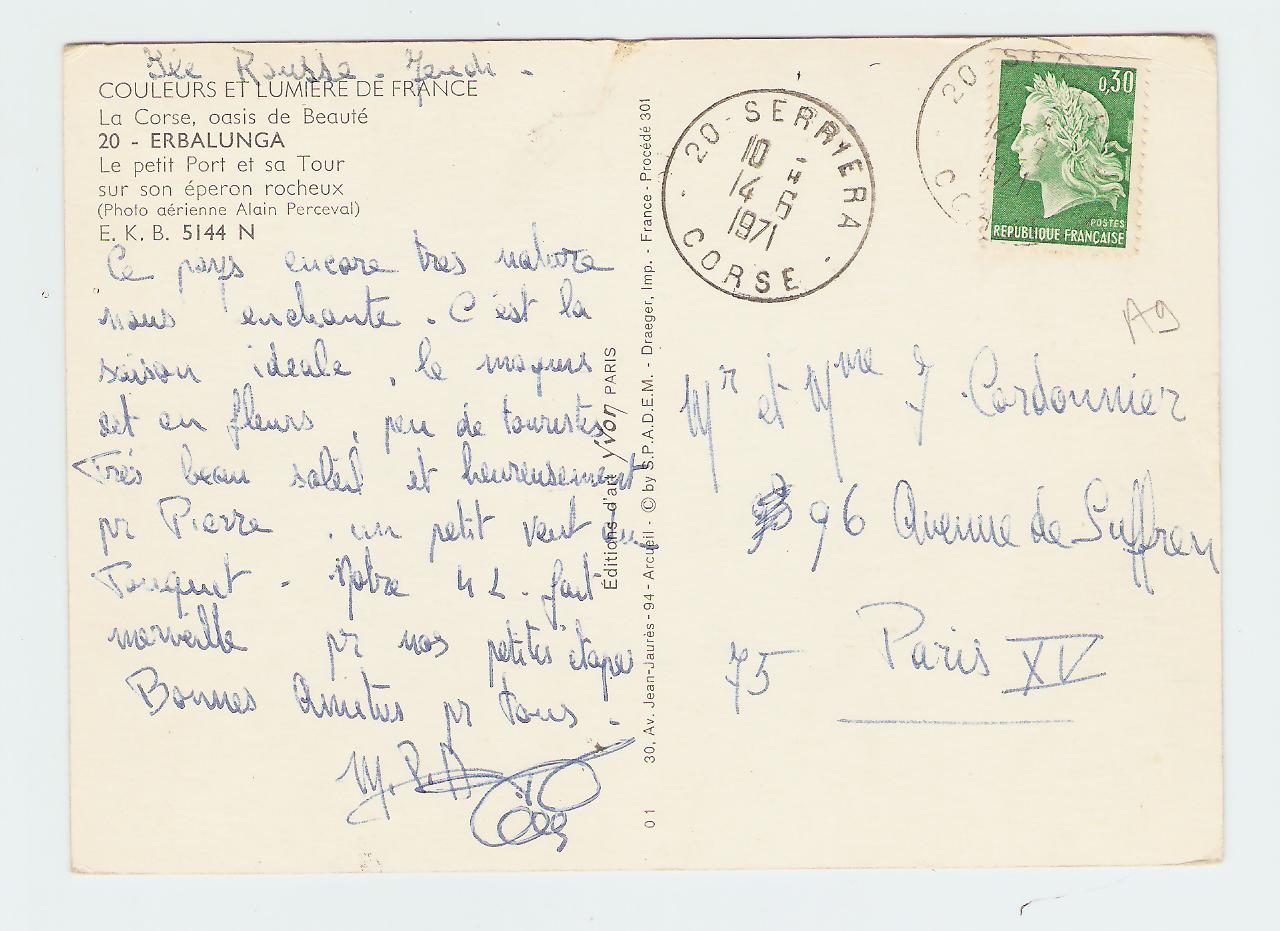 Ile Rousse - Jeudi -
COULEURS ET LUMIÈRE DE FRANCE
La Corse, oasis de Beauté
20 - ERBALUNGA
Le petit Port et sa Tour
sur son éperon rocheux
(Photo aérienne Alain Perceval)
E. K. B. 5144 N
Ce pays encore très nature
nous enchante. C'est la
saison ideale, le maquis
est en fleurs, peu de touristes
Très beau soleil et heureusement
pr Pierre. un petit vent
Touquet - Notre 4 L. fait
merveille pr nos petites étapes
Bonnes Amitiés pr tous -
Éditions d'art Yvon PARIS
30, Av. Jean-Jaurès - 94 - Arcueil - © by S.P.A.D.E.M. - Draeger, Imp. - France - Procédé 301
01
20 - SERRIERA
10 H
14 - 6
1971
CORSE
20 - SER
CO
0,30
POSTES
REPUBLIQUE FRANÇAISE
A9
Mr et Mme J. Cordonnier
96 Avenue de Suffren
75 Paris XV